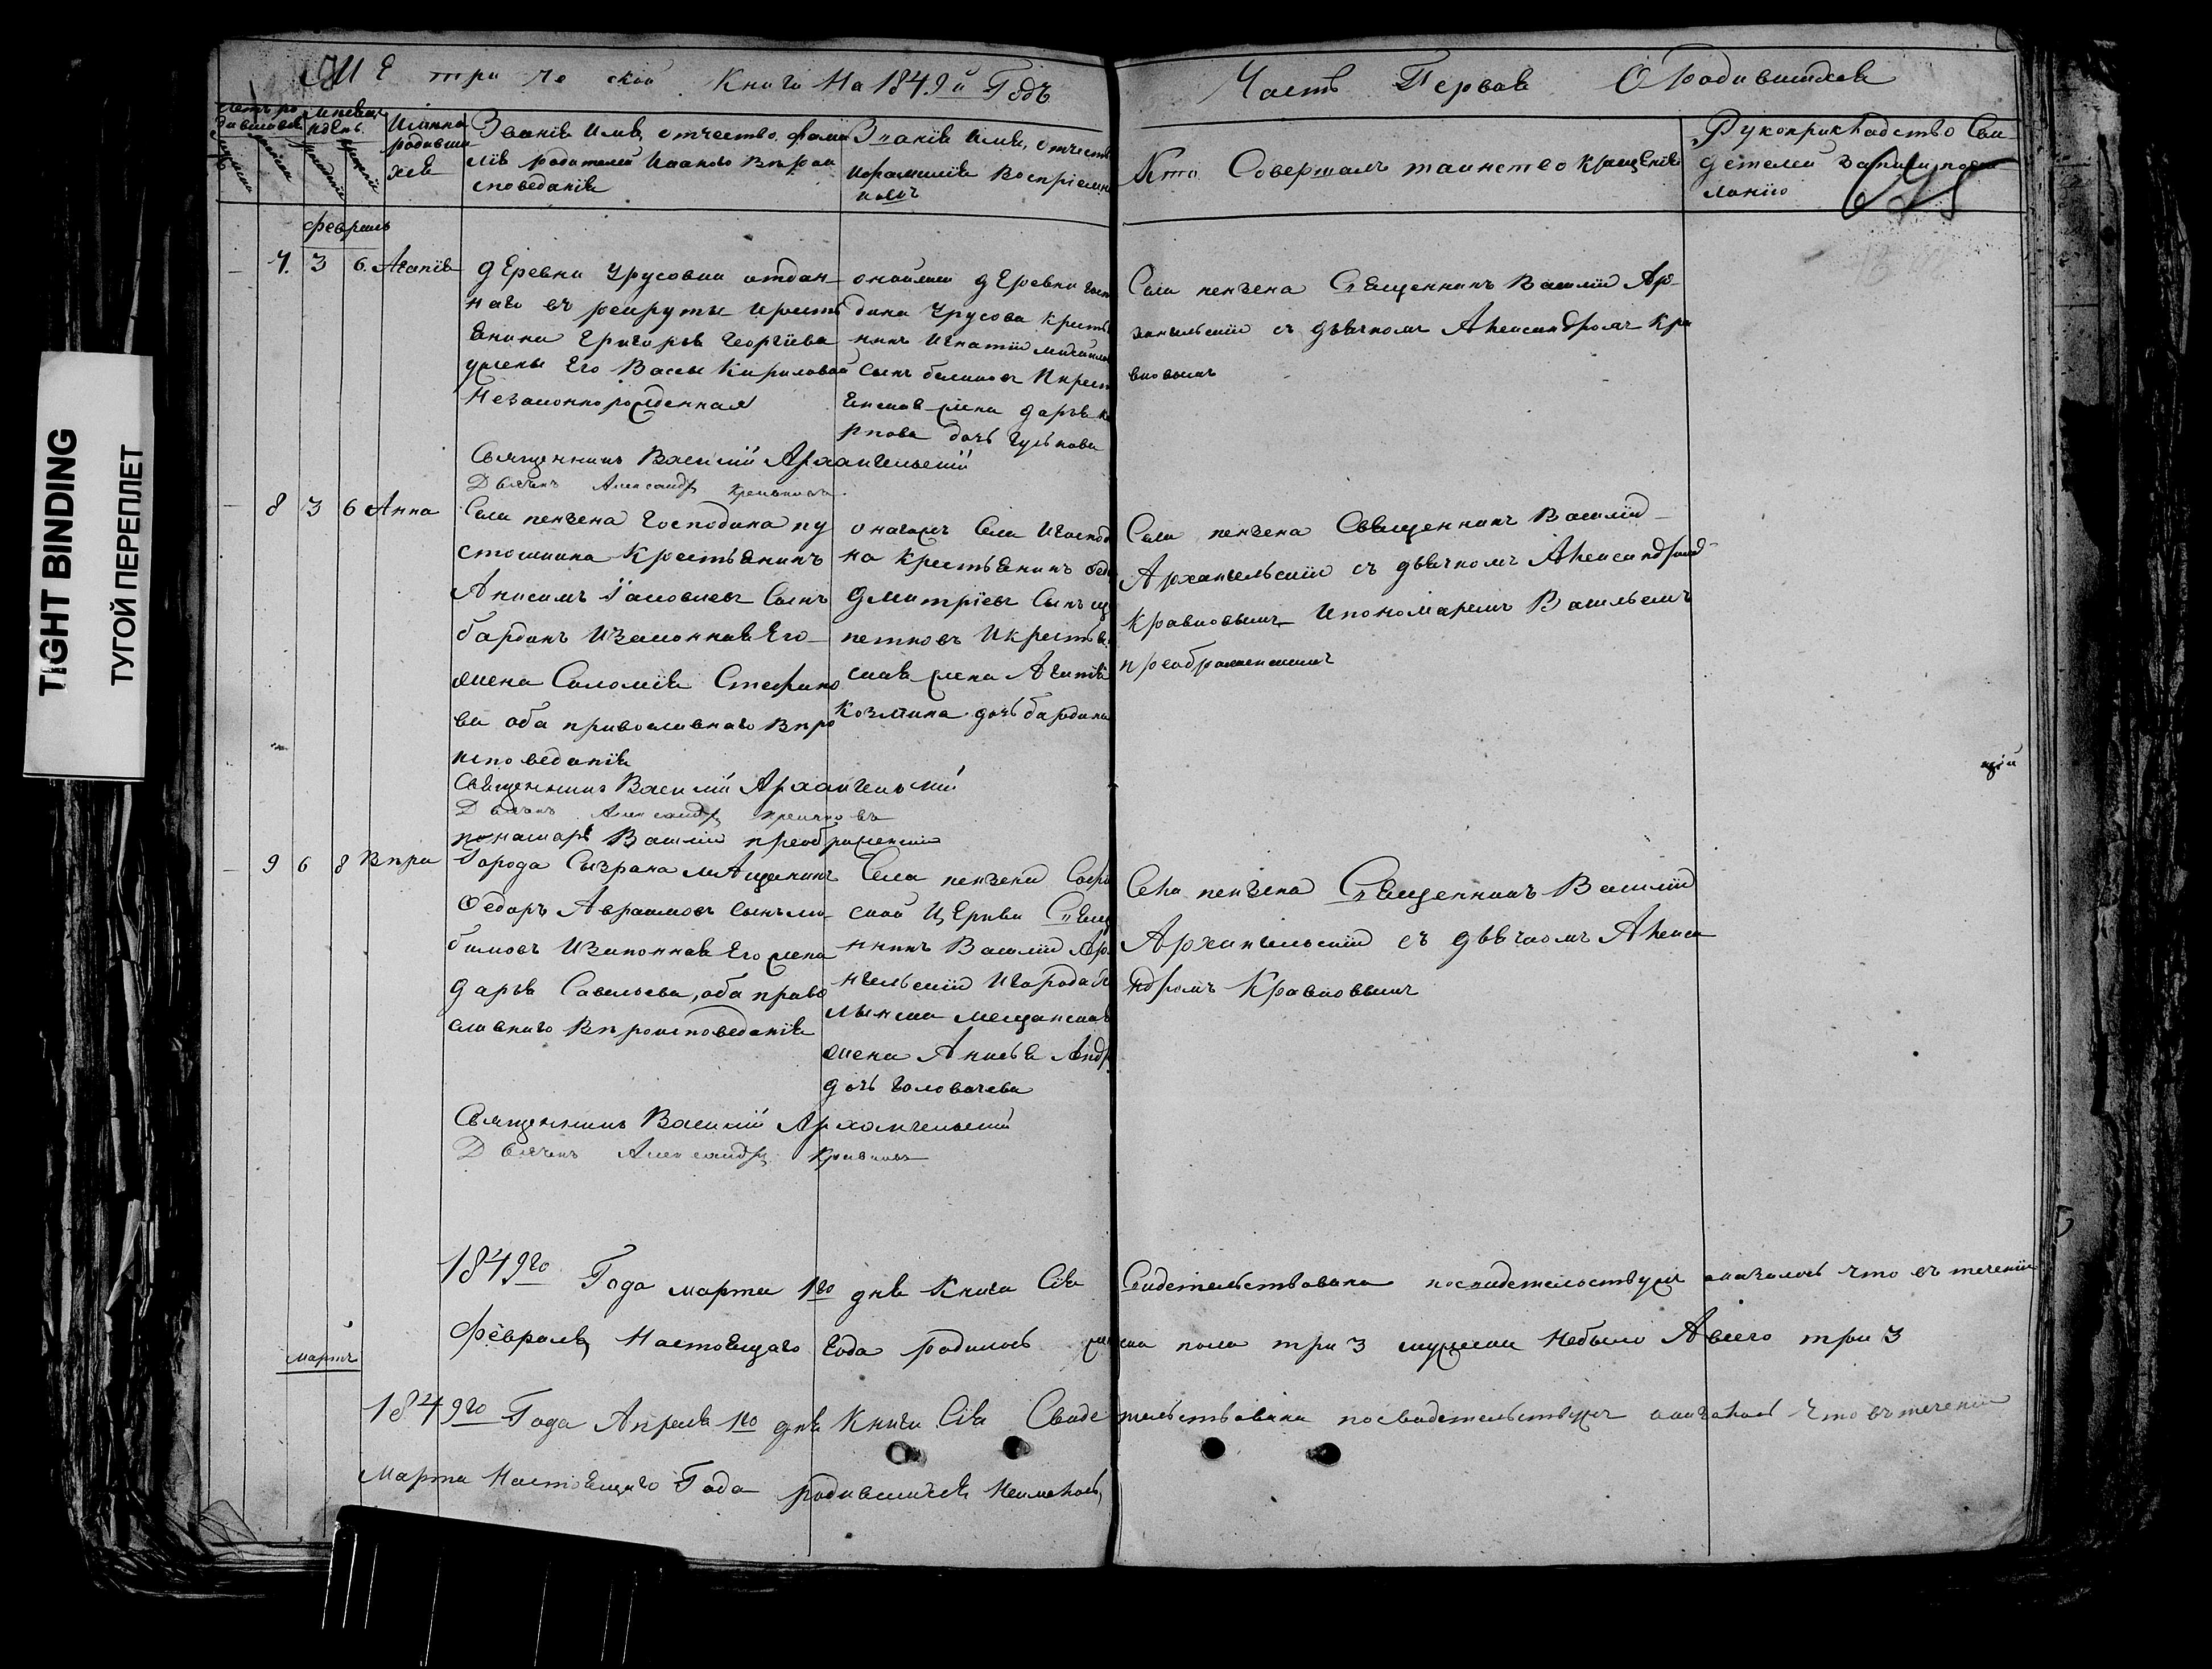 Метрической Книги На 1849й Годъ
Часть Первая О Родившихся
Имѣна
родивши
хся
Званiе Имя, отчество, фами
лiя родителей Икакого Вѣрои
споведанiя
Званiе Имя, отчеств
Ифамилiя Воспрiемни
ковъ
Кто Совершалъ таинство крещенiя
Рукоприкладство Сви
детелей записи поже
ланiю
685
Февраль
7. 3 6. Агапiя
деревни Урусовки отдан
наго въ рекруты крѣсть
янина Григорья Георгiева
ужены Его Васы Кириловой
Незаконнорожденная
Священникъ Василiй Архангельскiй
Дьячекъ Александръ
онойже деревни госп
дина Урусова кресть
нинъ Игнатiй Михайло
сынъ Икрест
янская жена дарья
дочь
Села пензена Священникъ Василiй Ар
хангельскiй съ дьячкомъ Александромъ Кра
вковымъ
8 3 6 Анна
Села пензена господина пу
стошкина Крестьянинъ
Анисимъ Iаковлевъ Сынъ
бардинъ Изаконная Его
жена Саломiя Стефано
ва оба православнаго Вѣро
исповеданiя
Священникъ Василiй Архангельскiй
Дьячекъ Александръ
понамарь Василiй преображенскiй
оногожъ Села Игоспод
на крестьянинъ Фед
Дмитрiевъ Сынъ
Икрестья
ская жена Агапiя
Козмина дочь бардина
Села пензена Священникъ Василiй
Архангельскiй съ дьячкомъ Александромъ
кравковымъ Ипономаремъ Васильемъ
преображенскимъ
9 6 8
Города Сызрана мѣщанинъ
Федоръ Аврамовъ сынъ
Изаконная Его жена
дарья Савельева, оба право
славнаго Вѣроисповеданiя
Священникъ Василiй Архангельскiй
Дьячекъ Александръ Кравковъ
Села пензена
ской Церкви Свящ
нникъ Василiй Ар
нгельскiй Игорода
мещанская
жена Анисья Андр
дочь головачева
Села пензена Священникъ Василiй
Архангельскiй съ дьячкомъ Алекса
ндромъ Кравковымъ
1849го Года марта 1го дня Книга Сiя Свидетельствована посвидетельствуя оказалось что въ теченiи
Февраля Настоящаго Года родилось женска пола три 3 мужска Небыло А всего три 3
мартъ
1849го Года Апреля 1го дня Книга Сiя Свидетельствована посвидетельствуя оказалось что въ теченiи
Марта Настоящаго Года родившихся Неимелось
TIGHT BINDING
ТУГОЙ ПЕРЕПЛЕТ